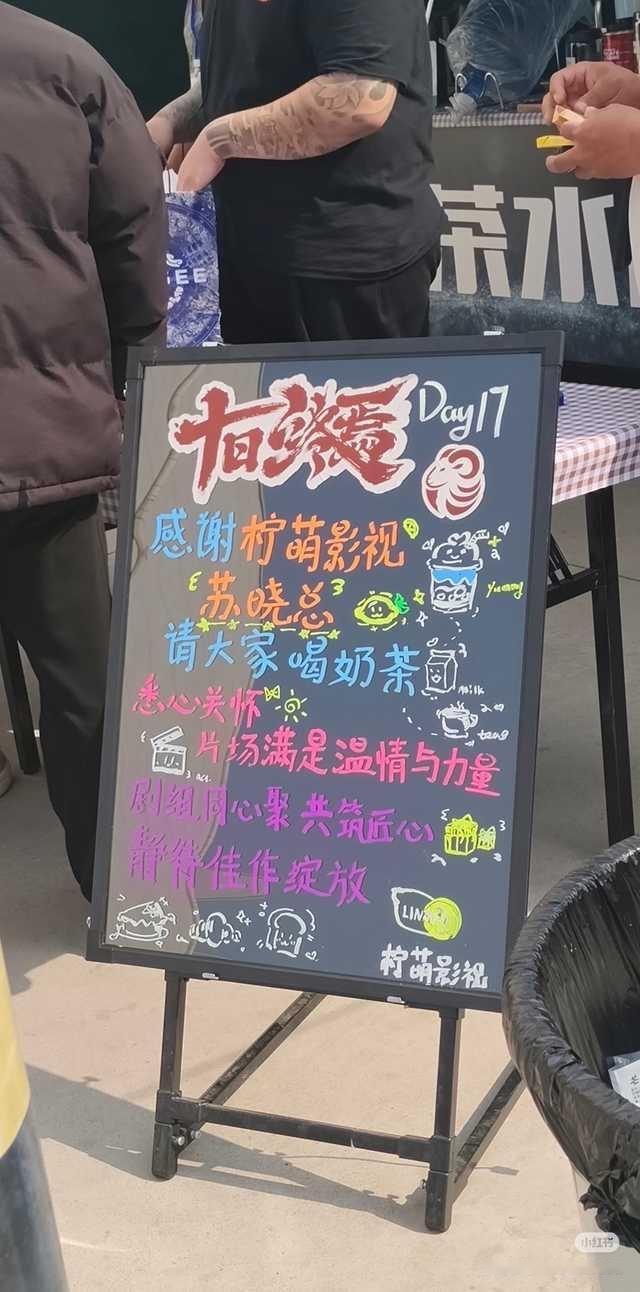 茶水
GEE
十日终焉
Day17
感谢柠萌影视
"苏晓总"
请大家喝奶茶
Yummy
milk
悉心关怀
片场满是温情与力量
剧组同心聚 共筑匠心
静待佳作绽放
柠萌影视
小红书